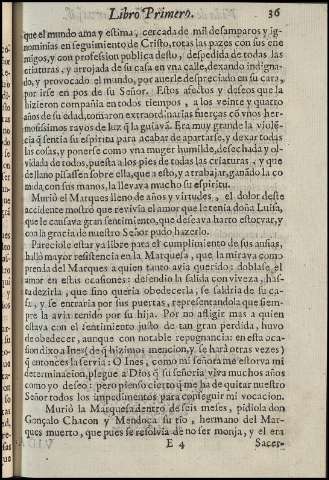 Libro Primero. 36
que el mundo ama y estima, cercada de mil desamparos y ig-
nominias en seguimiento de Cristo, rotas las pazes con sus ene
migos, y con profession publica desto, despedida de todas las
criaturas, y arrojada de su casa en vna calle, dexando indigna-
do, y provocado el mundo, por averle despreciado en su cara,
por irse en pos de su Señor. Estos afectos y deseos que la
hizieron compañia en todos tiempos, a los veinte y quatro
años de su edad, tomaron extraordinarias fuerças cõ vnos her-
mosissimos rayos de luz q̃ la guiavã. Era muy grande la violẽ-
cia q̃ sentia su espiritu para acabar de apartarse, y dexar todas
las cosas, y ponerse como vna muger humilde, desechada y ol-
vidada de todos, puesta a los pies de todas las criaturas, y que
de llano pisassen sobre ella, que a esto, y a trabajar, ganãdo la co
mida, con sus manos, la llevava mucho su espiritu.
Muriò el Marques lleno de años y virtudes, el dolor deste
accidente mostrò que revivia el amor que le tenia doña Luisa,
que le causava gran sentimiento, que deseava harto estorvar, y
con la gracia de nuestro Señor pudo hazerlo.
Pareciole estar ya libre para el cumplimiento de sus ansias,
hallò mayor resistencia en la Marquesa, que la mirava como
prenda del Marques a quien tanto avia querido: doblase el
amor en estas ocasiones: defendiò la salida con viveza, has-
ta dezirla, que sino queria obedecerla, se saldria de su ca-
sa, y se entraria por sus puertas, representandola que siem-
pre la avia tenido por su hija. Por no afligir mas a quien
estava con el sentimiento justo de tan gran perdida, huvo
de obedecer, aunque con notable repugnancia: en esta oca-
sion dixo a Ines (de q̃ hizimos mencion, y se harà otras vezes)
q̃ entonces la servia: O Ines, como mi señora me estorva mi
determinacion, plegue a Dios q̃ su señoria viva muchos años
como yo deseo: pero pienso cierto q̃ me ha de quitar nuestro
Señor todos los impedimentos para conseguir mi vocacion.
Muriò la Marquesa dentro de seis meses, pidiola don
Gonçalo Chacon y Mendoça su tio, hermano del Mar-
ques muerto, que pues se resolvia de no ser monja, y el era
E 4 Sacer-